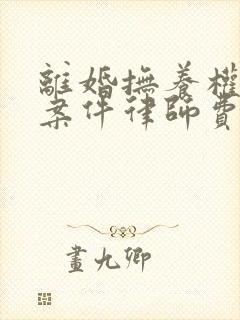 離婚撫養權
案件律師費
畫九卿